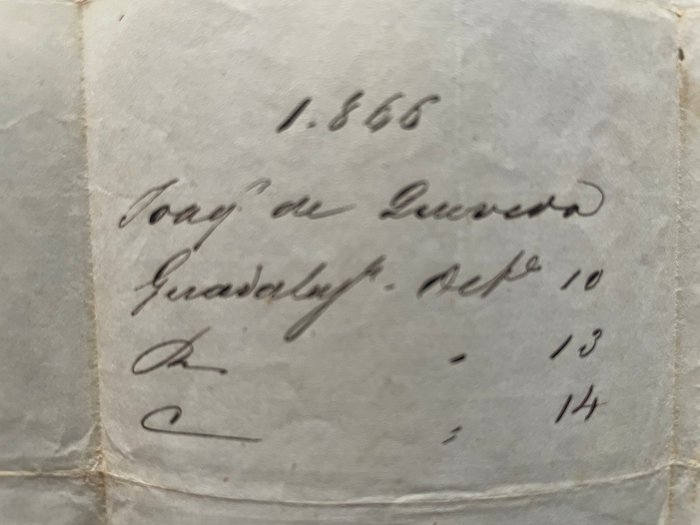 1.866
Joaqn de Quevedo
Guadalupe. Octe 10
R " 13
C " 14